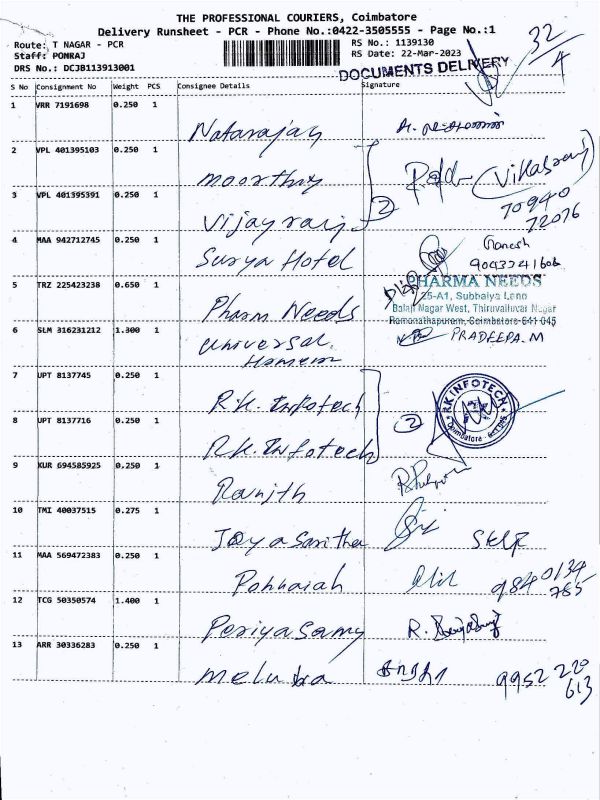 THE PROFESSIONAL COURIERS, Coimbatore
Delivery Runsheet - PCR - Phone No.:0422-3505555 - Page No.:1
Route: T NAGAR - PCR
RS No.: 1139130
Staff: PONRAJ
RS Date: 22-Mar-2023
DRS No.: DCJB113913001
32/4
DOCUMENTS DELIVERY
S No Consignment No Weight PCS Consignee Details Signature
1 VRR 7191698 0.250 1
Natarajan
2 VPL 401395103 0.250 1
moorthy
(Vikasraj)
3 VPL 401395391 0.250 1
Vijayraj 2
70940
72076
4 MAA 942712745 0.250 1
Surya Hotel
Ganesh
9043241606
5 TRZ 225423238 0.650 1
Pharm Needs
PHARMA NEEDS
25-A1, Subbaiya Lane
Balaji Nagar West, Thiruvalluvar Nagar
Ramanathapuram, Coimbatore-641 045
6 SLM 316231212 1.300 1
universal
PRADEEPA.M
7 UPT 8137745 0.250 1
R.K. Infotech
8 UPT 8137716 0.250 1
R.K. Infotech 2
RK INFOTECH
Coimbatore
9 KUR 694585925 0.250 1
Ranjith
10 TMI 40037515 0.275 1
Jayasaritha
Self
11 MAA 569472383 0.250 1
Ponnaiah
9840134
785
12 TCG 50350574 1.400 1
Periyasamy
R.
13 ARR 30336283 0.250 1
9952 220
613